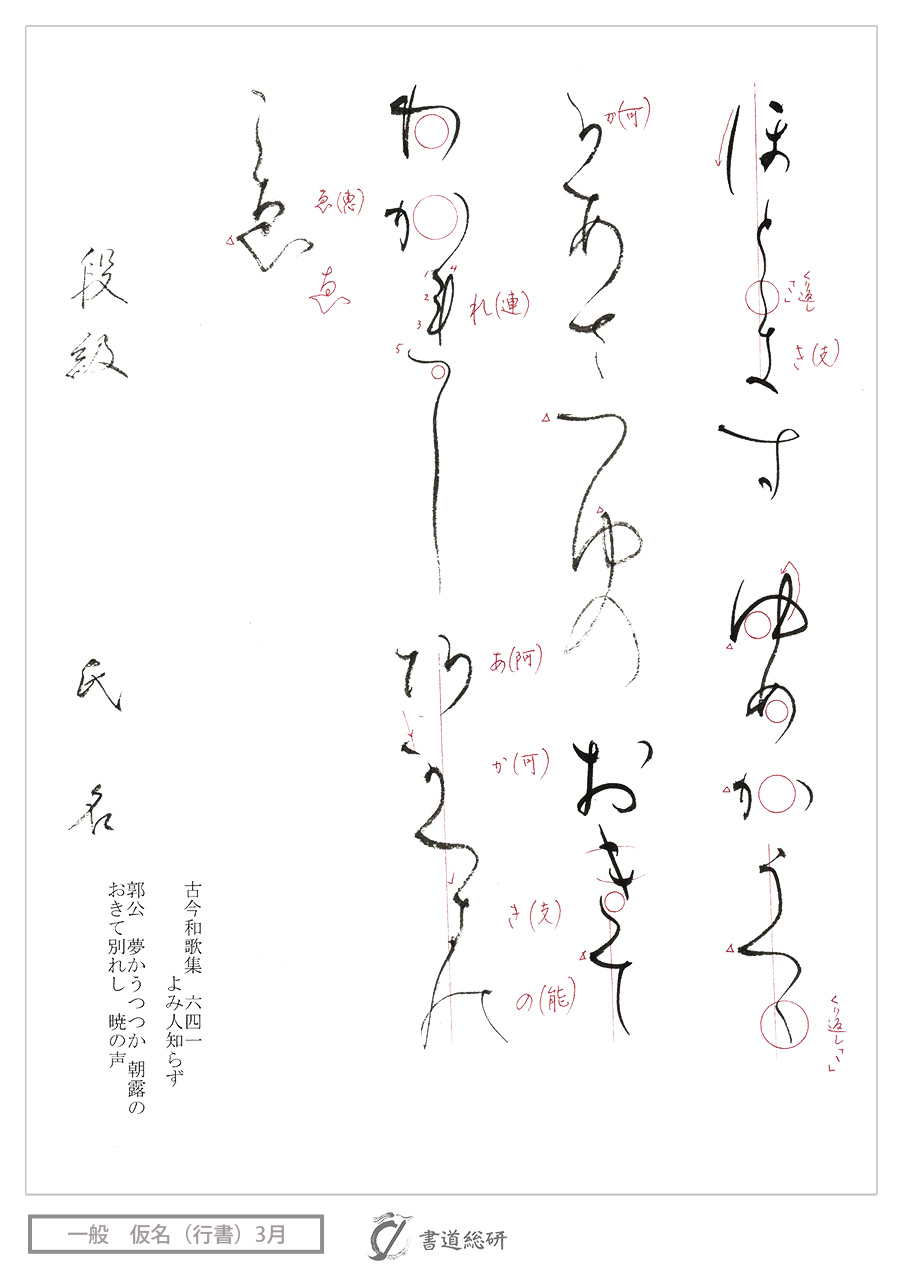 ほとゝ支す ゆめかうつゝ
くり返し「ゝ」
き(支)
くり返し「ゝ」
可あさつゆの おきて
か(可)
わか連し 阿可つ支能
れ(連)
あ(阿)
か(可)
き(支)
の(能)
こ恵
ゑ(恵)
ゑ
段級 氏名
古今和歌集 六四一
よみ人知らず
郭公 夢かうつつか 朝露の
おきて別れし 暁の声
一般 仮名（行書）3月
書道総研